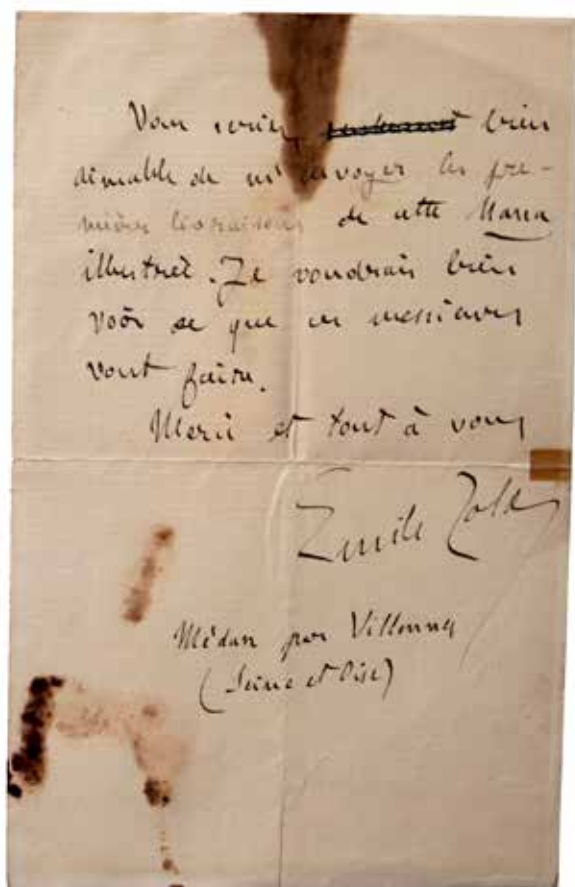 Vous seriez bien
aimable de m'envoyer les pre-
mières livraisons de cette Nana
illustrée. Je voudrais bien
voir ce que ces messieurs
vont faire.
Merci et tout à vous
Emile Zola
Médan par Villennes
(Seine et Oise)